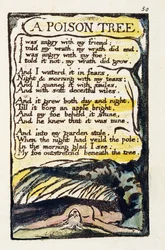 50
A POISON TREE.
I was angry with my friend:
I told my wrath, my wrath did end.
I was angry with my foe:
I told it not, my wrath did grow.
And I waterd it in fears,
Night & morning with my tears:
And I sunned it with smiles,
And with soft deceitful wiles.
And it grew both day and night.
Till it bore an apple bright.
And my foe beheld it shine,
And he knew that it was mine.
And into my garden stole.
When the night had veild the pole;
In the morning glad I see,
My foe outstretchd beneath the tree